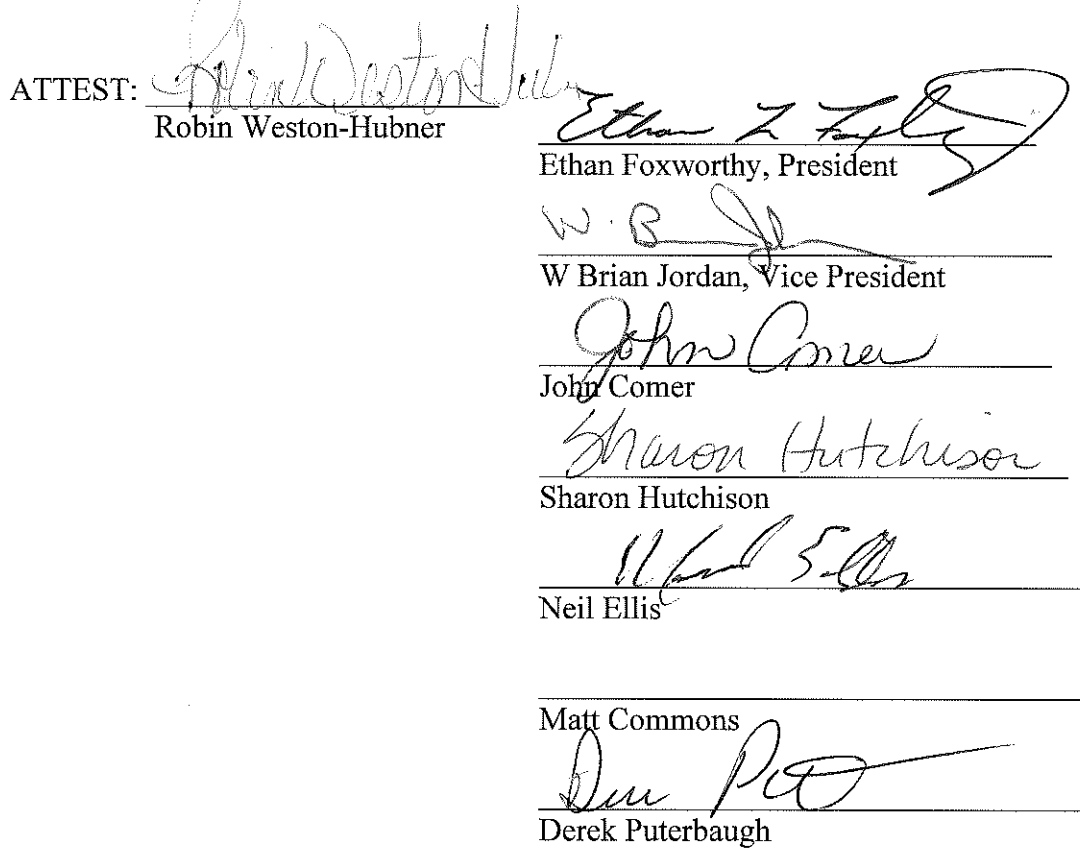 ATTEST: Robin Weston Hubner
Robin Weston-Hubner
Ethan L Foxworthy
Ethan Foxworthy, President
W. B Jordan
W Brian Jordan, Vice President
John Comer
John Comer
Sharon Hutchison
Sharon Hutchison
Ellis
Neil Ellis
Matt Commons
Derek Puterbaugh